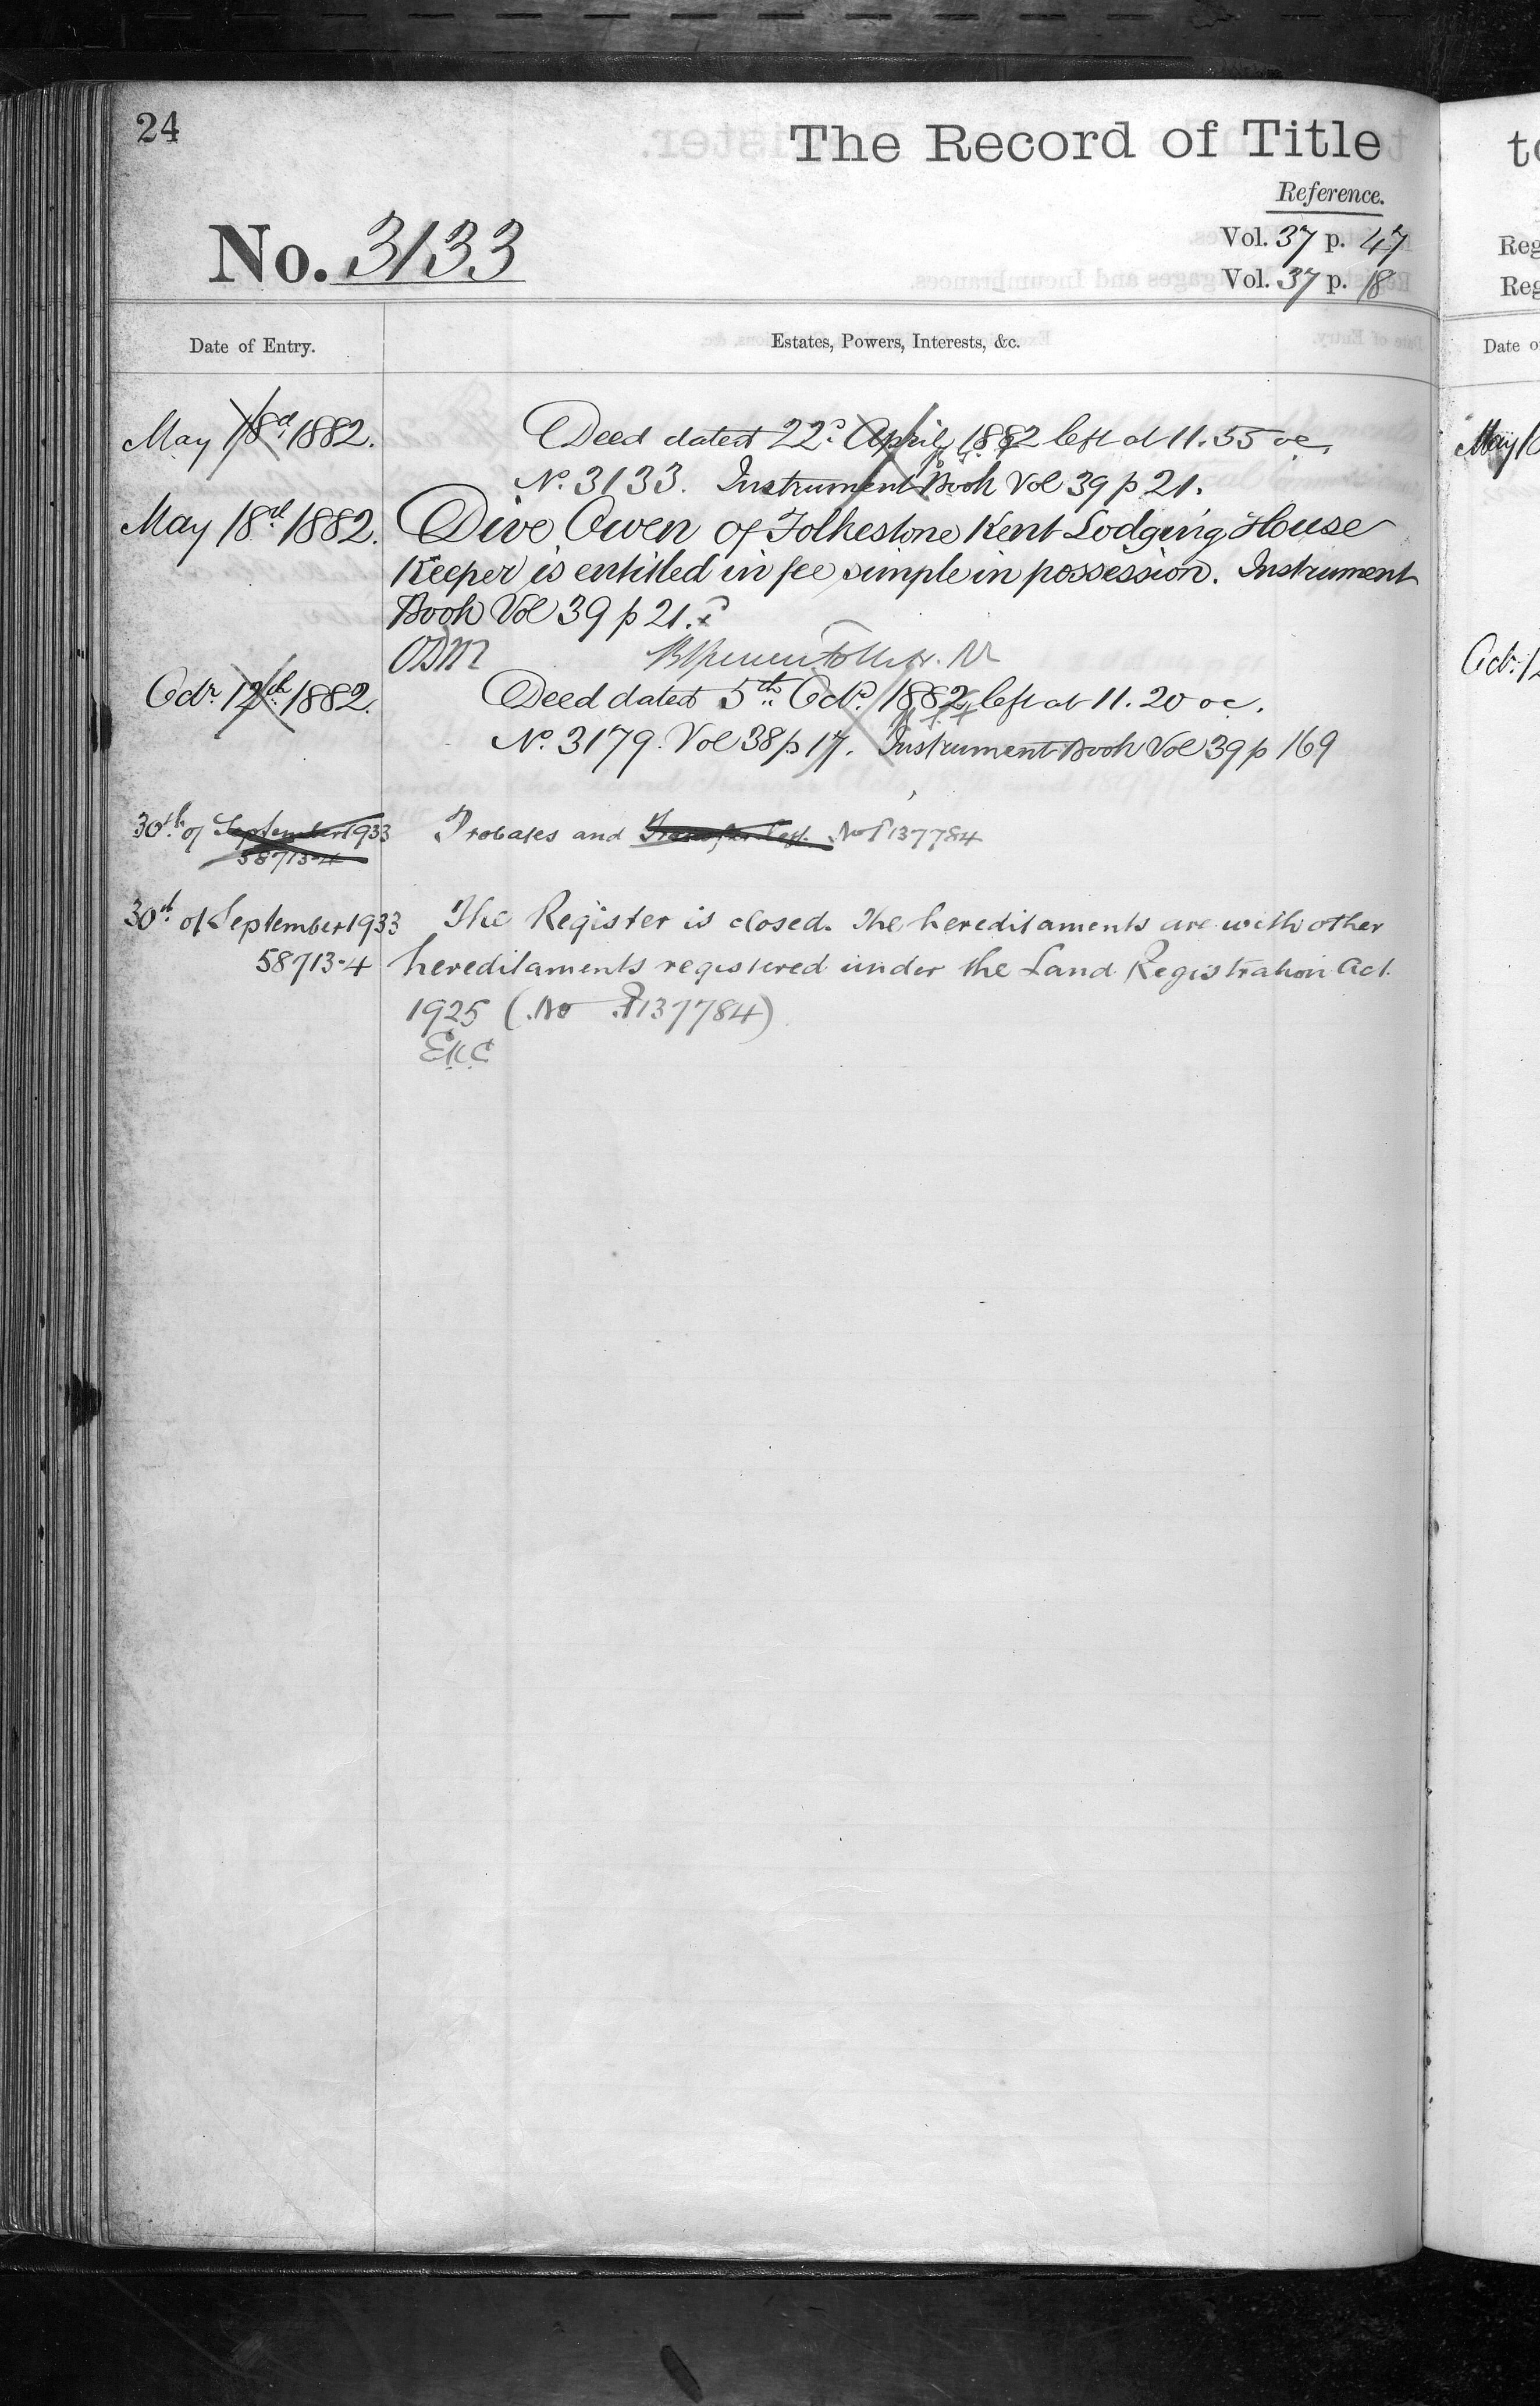 24
The Record of Title
Reference.
No. 3133
Vol. 37 p. 47
Vol. 37 p. 18
Date of Entry.
Estates, Powers, Interests, &c.
May 18d 1882.
Deed dated 22d April 1882 left at 11.55 oc.
No. 3133. Instrument Book Vol 39 p 21.
May 18d 1882.
Dive Owen of Folkestone Kent Lodging House
Keeper is entitled in fee simple in possession. Instrument
Book Vol 39 p 21.
ODM
Octr 12th 1882.
Deed dated 5th Octr 1882 left at 11.20 oc.
No. 3179. Vol 38 p 17. Instrument Book Vol 39 p 169
30th of September 1933
58713-4
Probates and Transfer left. No P137784
30th of September 1933
58713-4
The Register is closed. The hereditaments are with other
hereditaments registered under the Land Registration Act.
1925 (No P137784)
to
Reg
Reg
Date o
May 1
Octr. 12